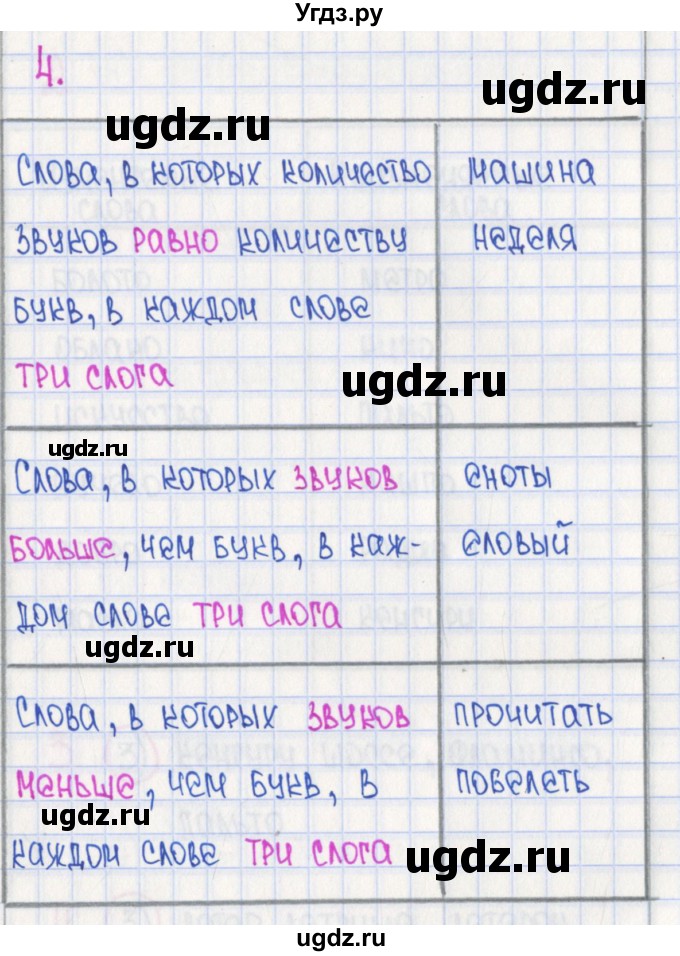 Угдз.ру
4.
ugdz.ru
ugdz.ru
Слова, в которых количество машина
звуков равно количеству неделя
букв, в каждом слове
три слога
ugdz.ru
ugdz.ru
Слова, в которых звуков еноты
больше, чем букв, в каж- еловый
дом слове три слога
ugdz.ru
Слова, в которых звуков прочитать
меньше, чем букв, в повелеть
ugdz.ru
каждом слове три слога
ugdz.ru
ugdz.ru